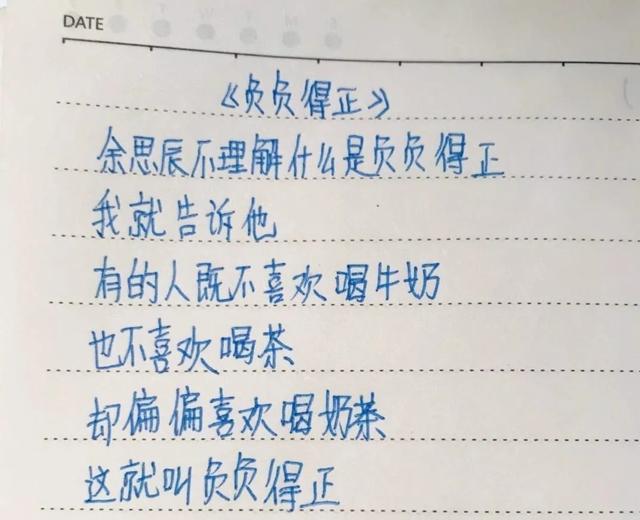 DATE
《负负得正》
余思辰不理解什么是负负得正
我就告诉他
有的人既不喜欢喝牛奶
也不喜欢喝茶
却偏偏喜欢喝奶茶
这就叫负负得正